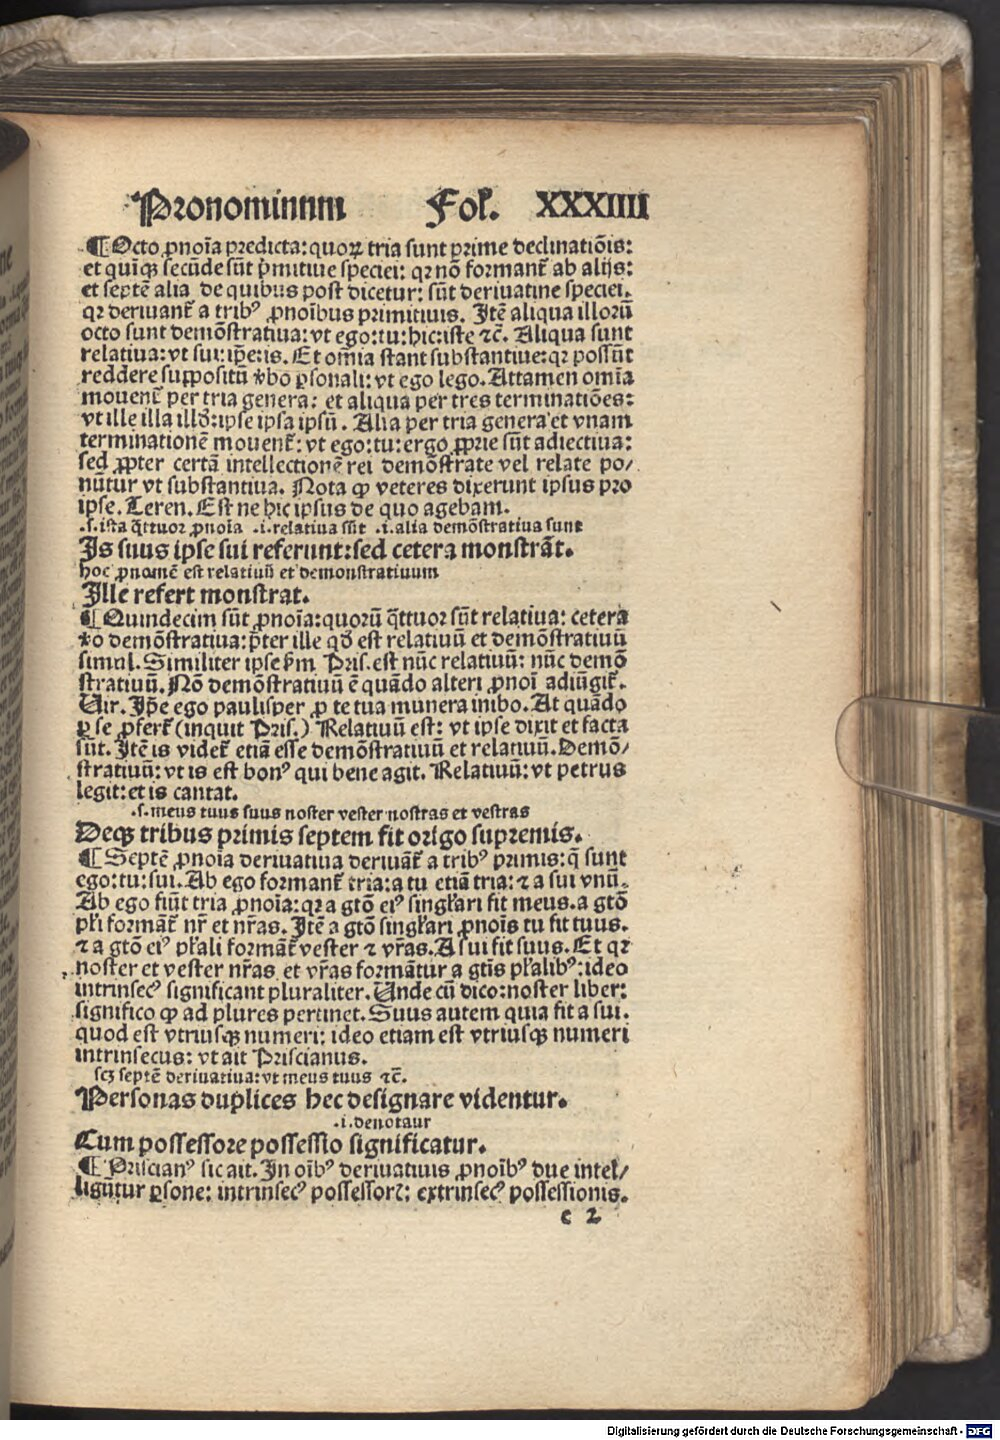 Pronominnm Fol. XXXIIII
¶ Octo ꝓnoīa predicta: quoꝝ tria sunt prime declinatiōis:
et quīqꝫ secūde sūt p̄mitiue speciei: qꝛ nō formant᷑ ab alijs:
et septē alia de quibus post dicetur: sūt deriuatine speciei.
qꝛ deriuant᷑ a tribꝰ ꝓnoībus primitiuis. Itē aliqua illorū
octo sunt demōstratiua: vt ego: tu: hic: iste ⁊c̄. Aliqua sunt
relatiua: vt sui: ip̄e: is. Et om̄ia stant substantiue: qꝛ possūt
reddere suppositū v̄bo ꝑsonali: vt ego lego. Attamen om̄ia
mouent᷑ per tria genera: et aliqua per tres terminatiōes:
vt ille illa illd̄: ipse ipsa ipsū. Alia per tria genera et vnam
terminationē mouent᷑: vt ego: tu: ergo ꝓprie sūt adiectiua:
sed ꝓpter certā intellectionē rei demōstrate vel relate po/
nūtur vt substantiua. Nota ꝙ veteres dixerunt ipsus pro
ipse. Teren. Est ne hic ipsus de quo agebam.
.s. ista q̄ttuor ꝓnoīa .i. relatiua sūt .i. alia demōstratiua sunt
Is suus ipse sui referunt: sed cetera monstrāt.
hoc ꝓnomē est relatiuū et demonstratiuum
Ille refert monstrat.
¶ Quindecim sūt ꝓnoīa: quorū q̄ttuor sūt relatiua: cetera
v̄o demōstratiua: p̄ter ille qd̄ est relatiuū et demōstratiuū
simul. Similiter ipse s̄m Pris. est nūc relatiuū: nūc demō
stratiuū. Nō demōstratiuū ē quādo alteri ꝓnoī adiūgit᷑.
Uir. Ip̄e ego paulisper ꝓ te tua munera inibo. At quādo
ꝑ se ꝓfert᷑ (inquit Pris.) Relatiuū est: vt ipse dixit et facta
sūt. Itē is videt᷑ etiā esse demōstratiuū et relatiuū. Demō/
stratiuū: vt is est bonꝰ qui bene agit. Relatiuū: vt petrus
legit: et is cantat.
.s. meus tuus suus noster vester nostras et vestras
Deqꝫ tribus primis septem fit origo supremis.
¶ Septē ꝓnoīa deriuatiua deriuāt᷑ a tribꝰ primis: q̄ sunt
ego: tu: sui. Ab ego formant᷑ tria: a tu etiā tria: ⁊ a sui vnū.
Ab ego fiūt tria ꝓnoīa: qꝛ a gtō eiꝰ singl̄ari fit meus. a gtō
pl̄i formāt᷑ nr̄ et nr̄as. Itē a gtō singl̄ari ꝓnoīs tu fit tuus.
⁊ a gtō eiꝰ pl̄ali formāt᷑ vester ⁊ vr̄as. A sui fit suus. Et qꝛ
noster et vester nr̄as et vr̄as formātur a gtīs pl̄alibꝰ: ideo
intrinsecꝰ significant pluraliter. Unde cū dico: noster liber:
significo ꝙ ad plures pertinet. Suus autem quia fit a sui.
quod est vtriusqꝫ numeri: ideo etiam est vtriusqꝫ numeri
intrinsecus: vt ait Priscianus.
scꝫ septē deriuatiua: vt meus tuus ⁊c̄.
Personas duplices hec designare videntur.
.i. denotaur
Cum possessore possessio significatur.
¶ Priscianꝰ sic ait. In oībꝰ deriuatiuis ꝓnoībꝰ due intel/
ligūtur ꝑsone: intrinsecꝰ possessorꝭ: extrinsecꝰ possessionis.
e 2
Digitalisierung gefördert durch die Deutsche Forschungsgemeinschaft - DFG